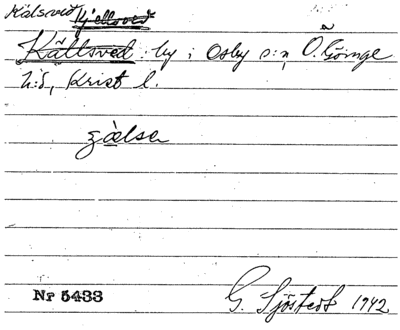 Kälsved Kjellsved
Källsved. by i Osby s:n Ö. Göinge
h:d, Krist l.
Nr 5433 G. Sjöstedt 1942